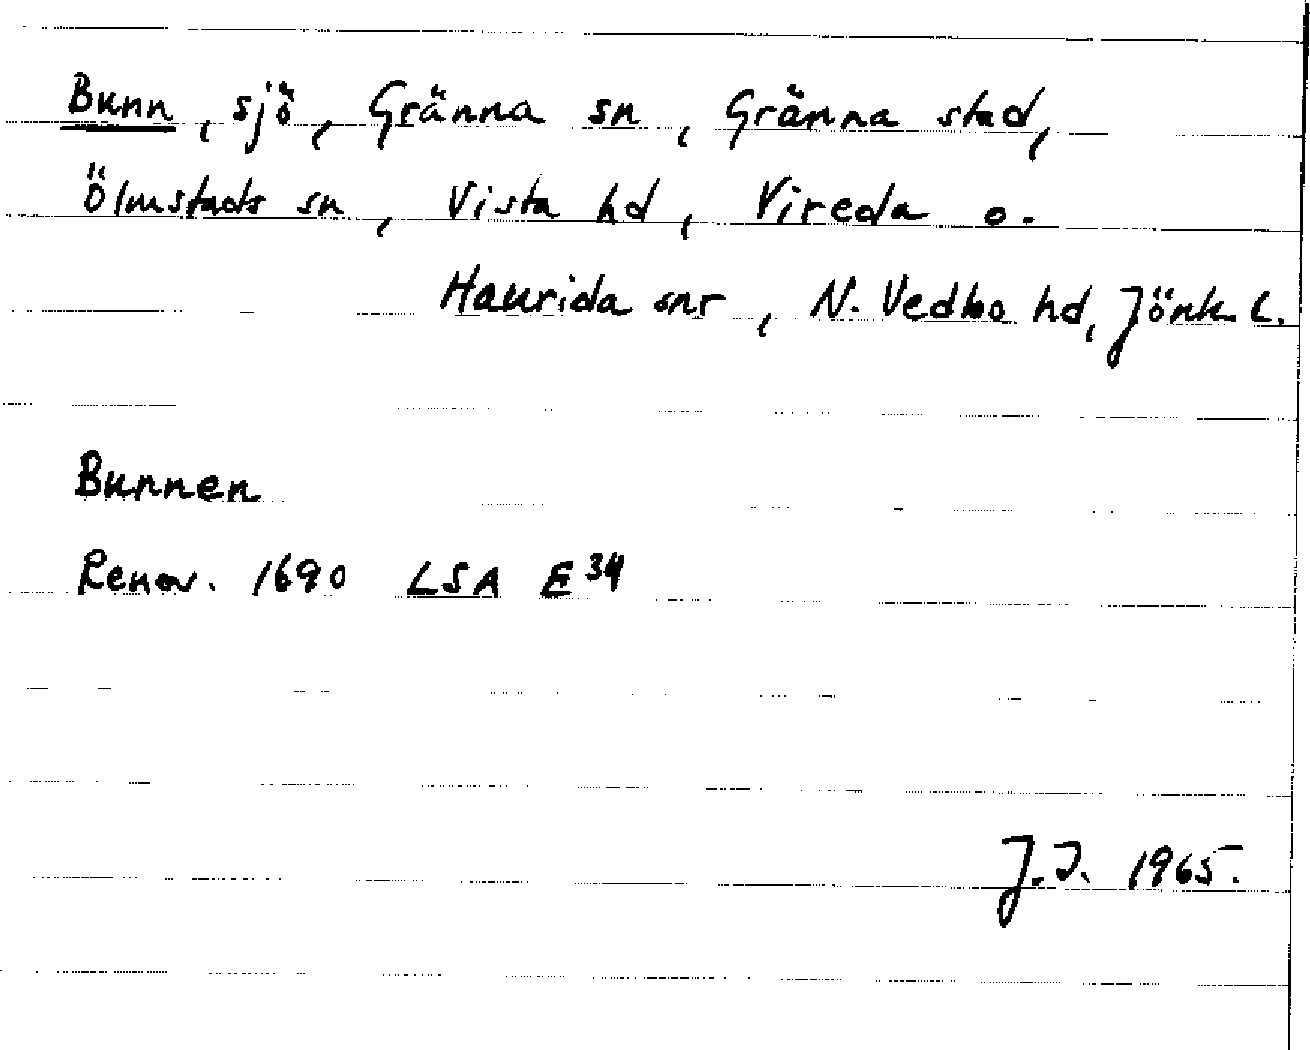 Bunn, sjö, Gränna sn, Gränna stad,
Ölmstads sn, Vista hd, Vireda o.
Haurida snr, N. Vedbo hd, Jönk. L.
Bunnen
Renov. 1690 LSA E 34
J.I. 1965.